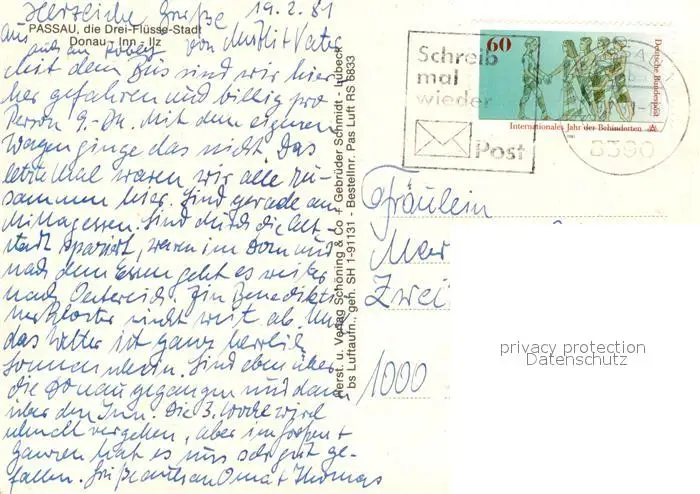 Herzliche Grüße 19.2.81
PASSAU, die Drei-Flüsse-Stadt
Donau - Inn - Ilz
aus von Mutti + Vati
auch an
Mit dem Bus sind wir hier
her gefahren und billig pro
Person 9,- DM. Mit dem eigenen
Wagen ginge das nicht. Das
letzte Mal waren wir alle zu-
sammen hier. Sind gerade am
Mittagessen. Sind durch die Alt-
stadt spaziert, waren im Dom und
nach dem Essen geht es weiter
nach Oesterreich. Ein Benedikti-
nerkloster nicht weit ab. Und
das Wetter ist ganz herrlich
Sonnenschein. Sind eben über
die Donau gegangen und dann
über den Inn. Die 3. Woche wird
schnell vergehen, aber im großen +
ganzen hat es uns sehr gut ge-
fallen. Grüße auch an Oma + Thomas
Herst. u. Verlag Schöning & Co + Gebrüder Schmidt - Lübeck
bs Luftaufn., geh. SH 1-91131 - Bestellnr. Pas Luft RS 6833
Schreib
mal
wieder
Post
60
Deutsche Bundespost
Internationales Jahr der Behinderten
8390
Fräulein
Mar
Zwei
1000
privacy protection
Datenschutz